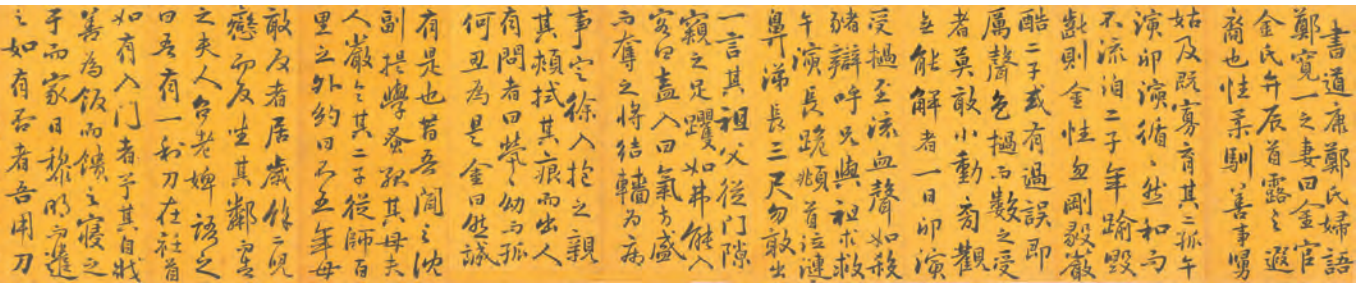 書道康鄭氏婦語
鄭寬一之妻曰金官
金氏弁辰首露之遐
裔也性柔馴善事舅
姑及既寡育其二孤午
演卯演循〻然和而
不流洎二子年踰毀
齔則金性忽剛毅嚴
酷二子或有過誤即
厲聲色撾而數之受
者莫敢小動旁觀
無能解者一日卯演
受撾至流血聲如殺
豬辯呼兄與祖求救
午演長跪頫首泣漣
鼻涕長三尺勿敢出
一言其祖父從門隙
窺之足躩如弗能入
客曰盍入曰氣方盛
而奪之將結轖為病
事定徐入抱之親
其頰拭其痕而出人
有問者曰煢〻幼而孤
何丑為是金曰然誠
有是也昔吾聞之沈
副提學蚤孤其母夫
人嚴令其二子從師百
里之外約曰不五年毋
敢反者居歲餘二兒
戀而反坐其鄰
之夫人召老婢語之
曰吾有一利刀在首
如有入門者予其自戕
善為飯而饋之寢之
于而家日黎明而進
之如有否者吾用刀